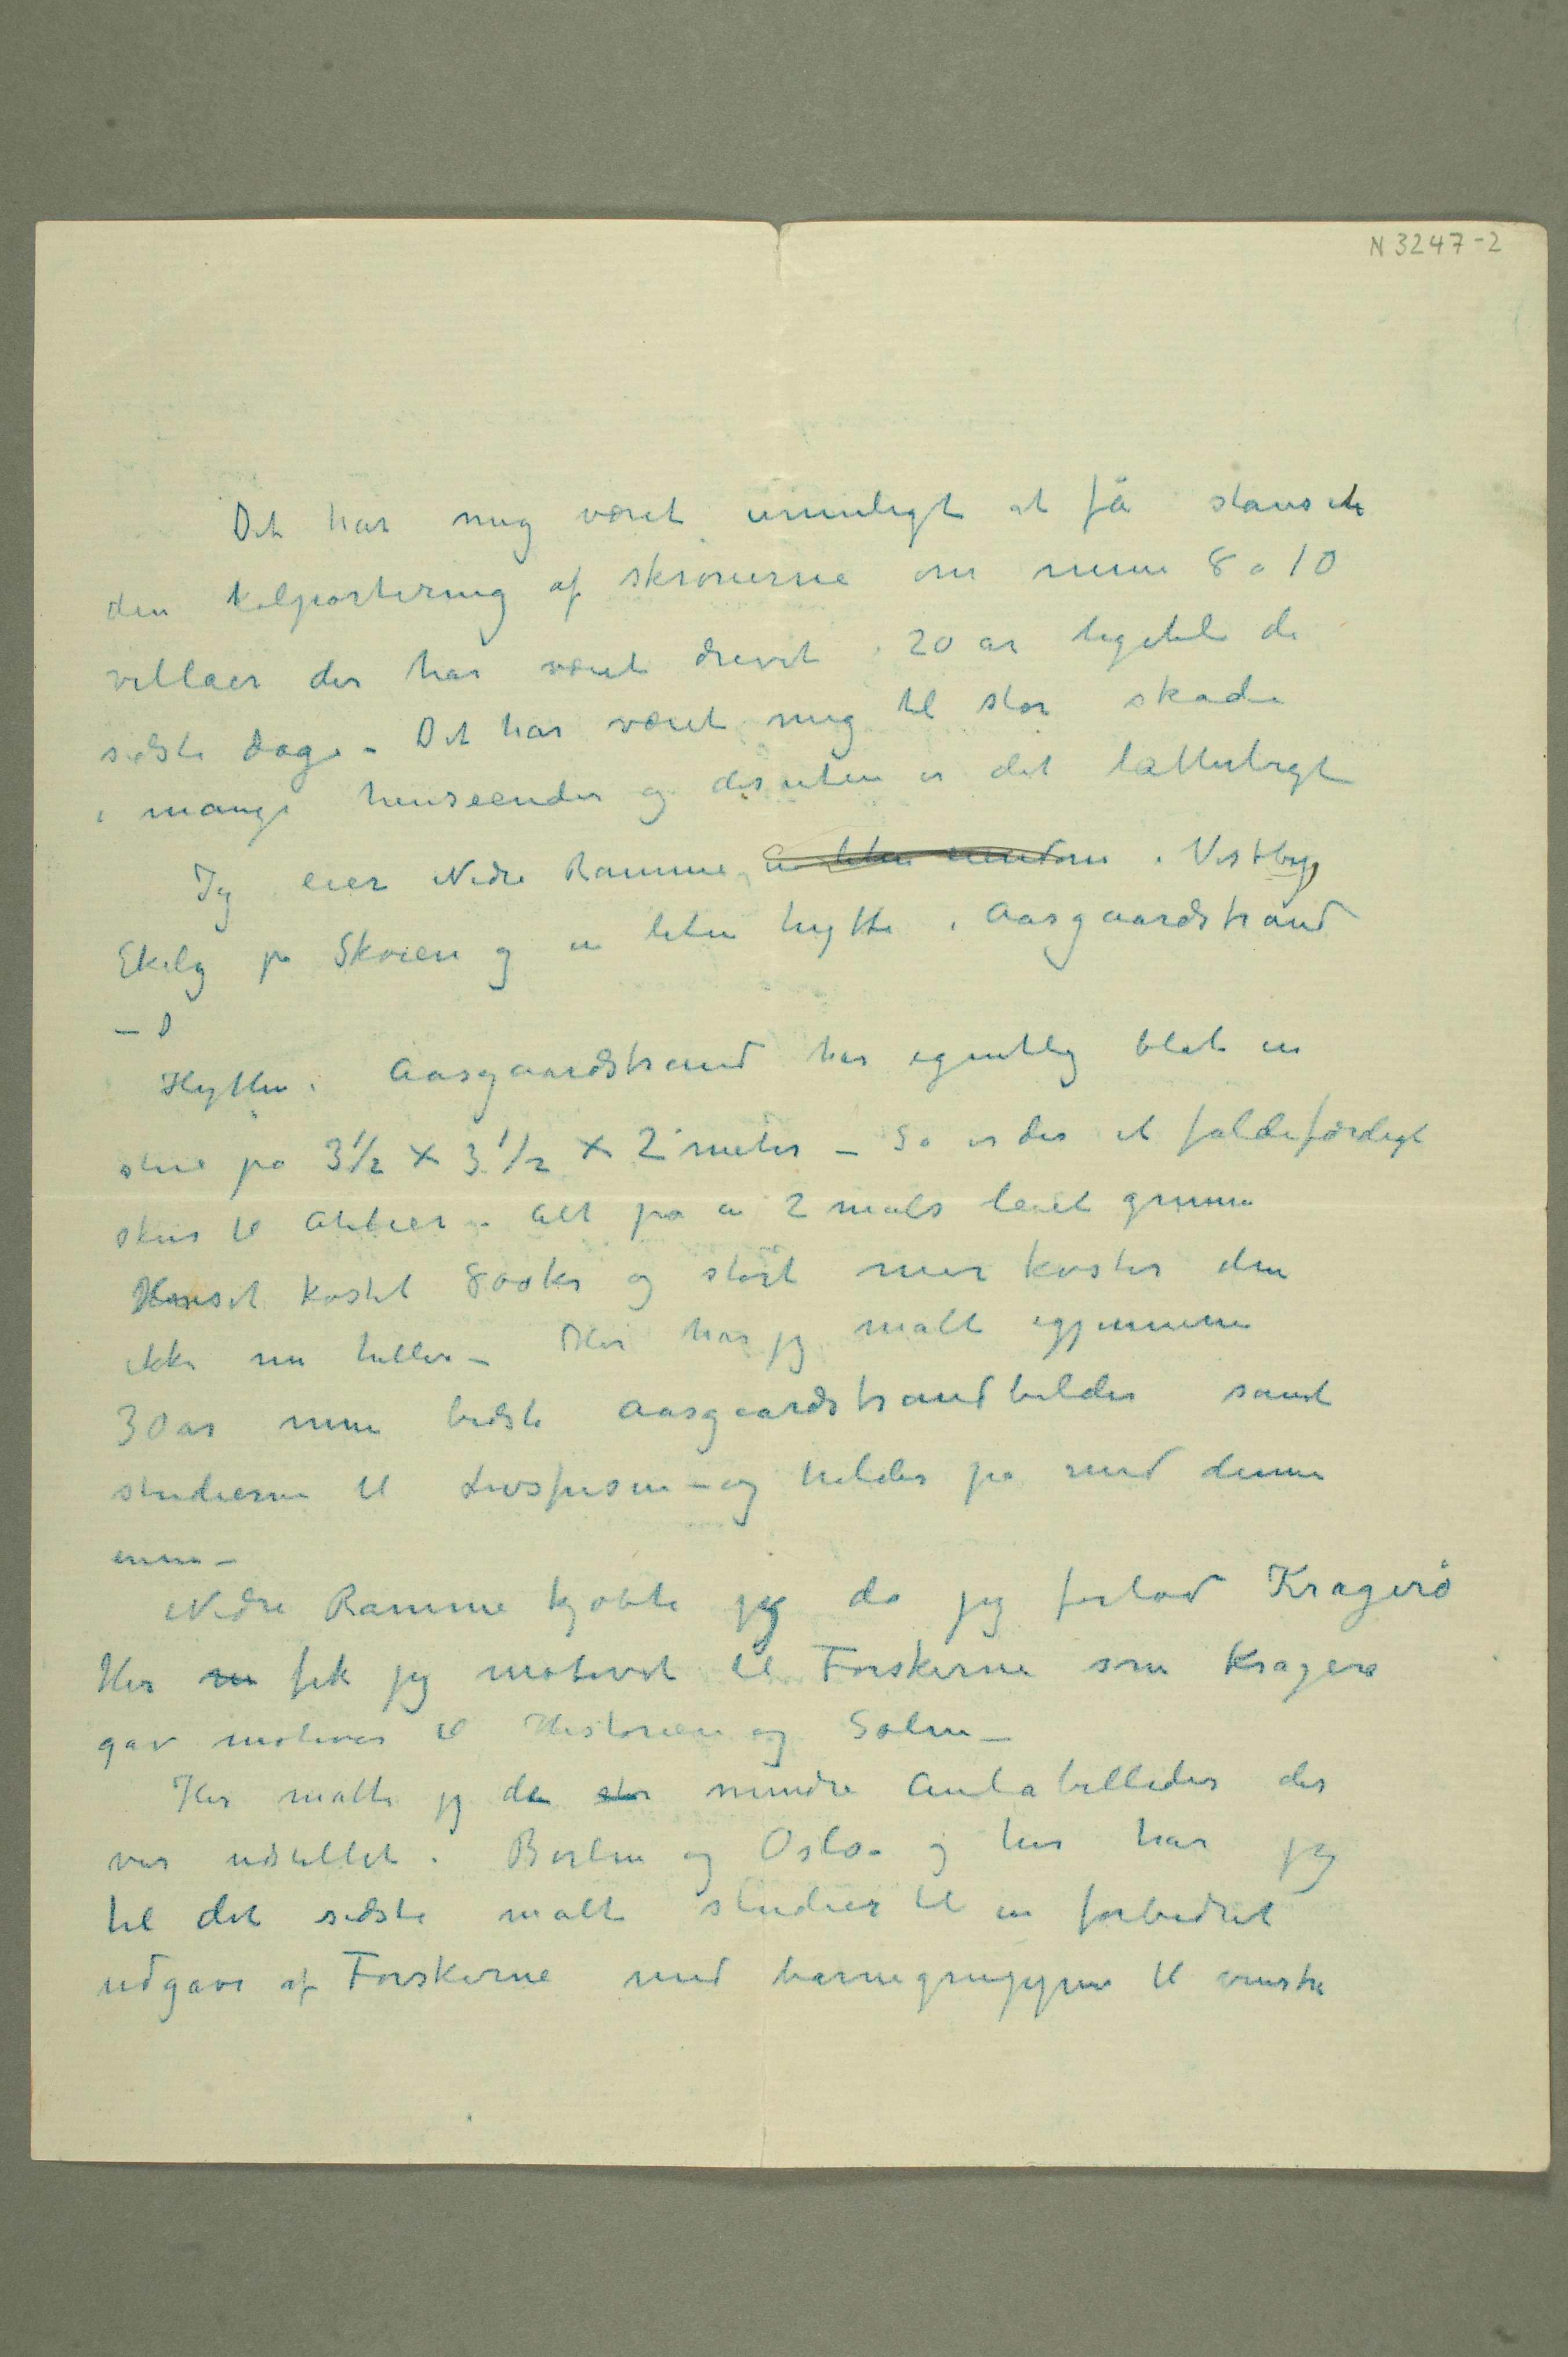 N 3247-2
Det har mig været umuligt at få stanset
den kolportering af skrønerne om mine 8 a 10
villaer der har været drevet i 20 år ligetil de
sidste dage – Det har været mig til stor skade
i mange henseender og desuten er det latterligt
Jeg eier Nedre Ramme, en liten eiendom i Vestby,
Ekely på Skøien og en liten hytte i Aasgaardstrand
– D
Hytten i Aasgaardstrand har egentlig blot en
stue på 3 1/2 × 3 1/2 × 2 meter – Så er der et faldefærdigt
skur til Atelier – Alt på en 2 mals leiet grunn
Huset kostet 800kr og stort mer koster den
ikke nu heller – Her har jeg malt igjennem
30 år mine bedste Aasgaardstrandbilleder samt
studierne til Livsfrisen – og holder på med denne
ennu –
Nedre Ramme kjøbte jeg da jeg forlod Kragerø
Her fik jeg motivet til Forskerne som Kragerø
gav motiver til Historien og Solen –
Her malte jeg de stor mindre Aulabilleder der
var udstillet i Berlin og Oslo – og her har jeg
til det sidste malt studier til en forbedret
udgave af Forskerne med barnegruppen til venstre